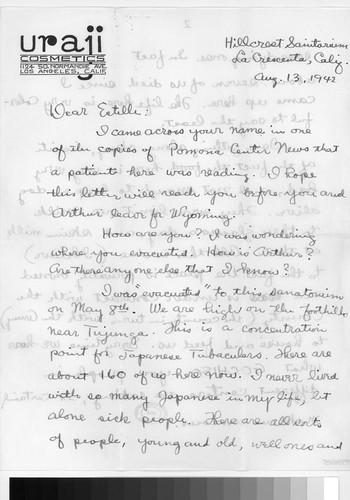 uraji
COSMETICS
1124 SO. NORMANDIE AVE.
LOS ANGELES, CALIF.
Hillcrest Sanitarium
La Crescenta, Calif.
Aug. 13, 1942
Dear Estelle:
I came across your name in one
of the copies of Pomona Center News that
a patient here was reading. I hope
this letter will reach you before you and
Arthur leave for Wyoming.
How are you? I was wondering
where you evacuated. How is Arthur?
Are there any one else that I know?
I was "evacuated" to this sanatorium
on May 8th. We are high on the foothills
near Tujunga. This is a concentration
point for Japanese Tubaculers. There are
about 160 of us here now. I never lived
with so many Japanese in my life, let
alone sick people. There are all sorts
of people, young and old, well ones and